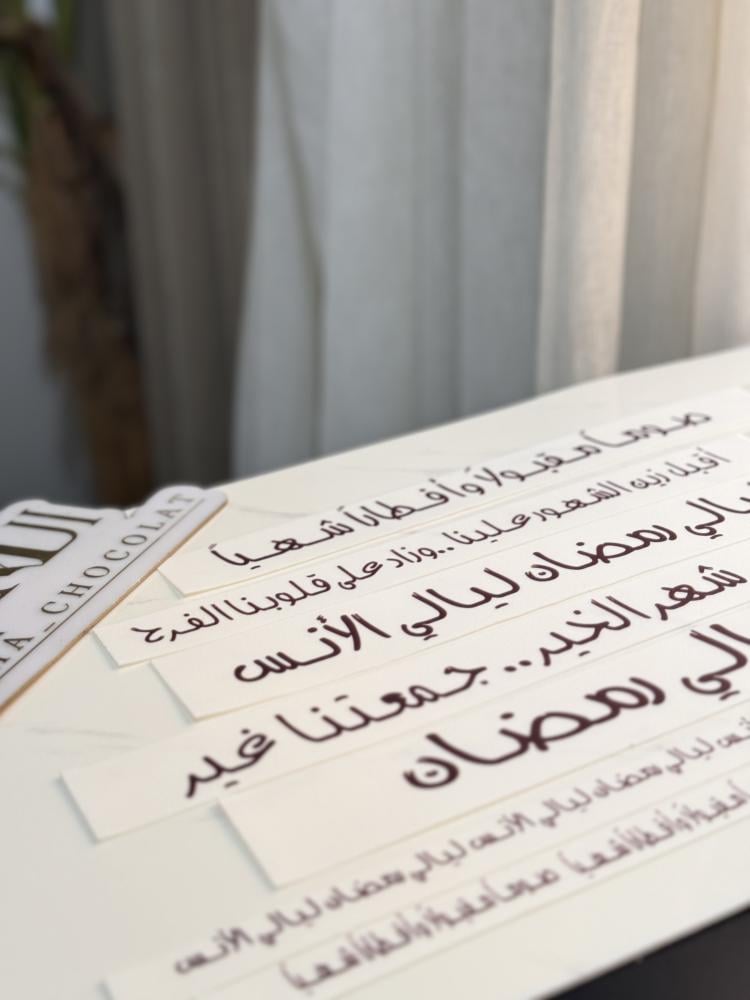 صوماً مقبولاً وأفطاراً شهياً
أقبل زين الشهور علينا .. وزاد على قلوبنا الفرح
ليالي رمضان ليالي الأنس
شهر الخير .. جمعتنا غير
ليالي رمضان
ليالي رمضان ليالي الأنس ليالي رمضان ليالي الأنس
صوماً مقبولاً وأفطاراً شهياً
CHOCOLAT